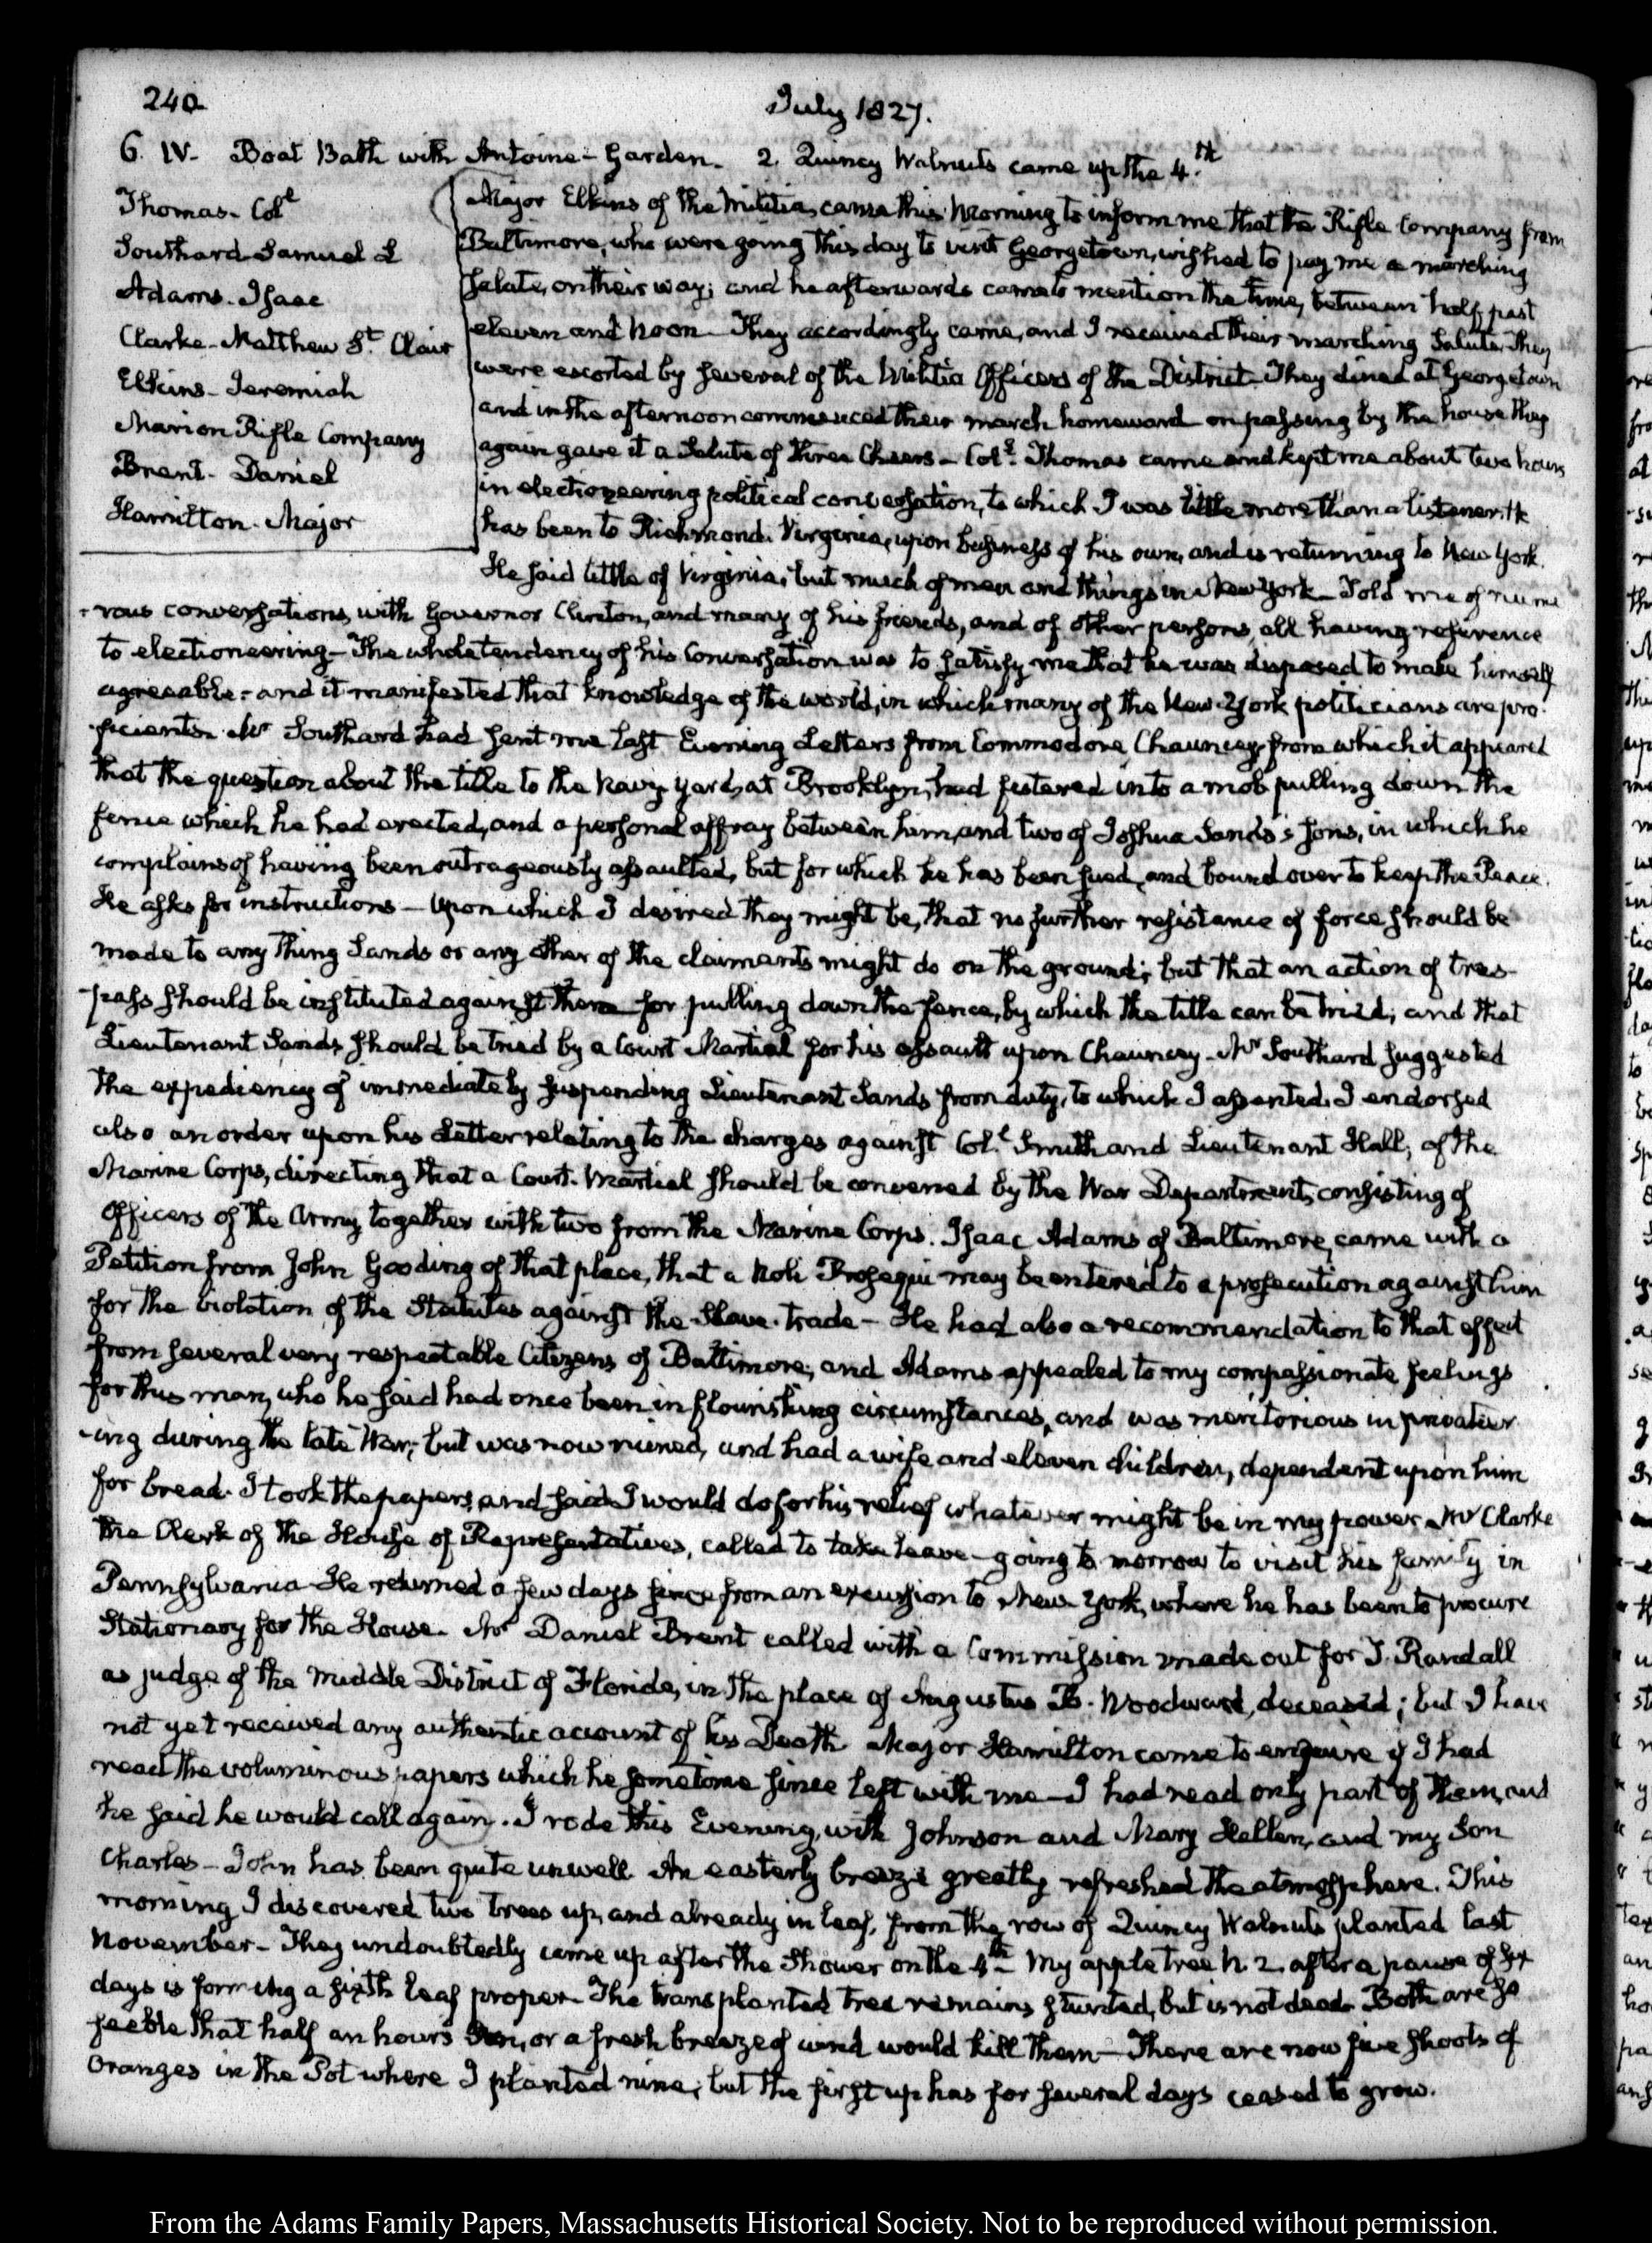 240
July 1827.
6. IV. Boat Bath with Antoine - Garden. 2. Quincy Walnuts came up the 4.th
Thomas - Col.l
Southard Samuel L
Adams - Isaac
Clarke - Matthew S.t Clair
Elkins - Jeremiah
Marion Rifle Company
Brent - Daniel
Hamilton - Major
Major Elkins of the Militia, came this Morning to inform me that the Rifle Company from
Baltimore, who were going this day to visit Georgetown, wished to pay me a marching
Salute, on their way; and he afterwards came to mention the time, between half past
eleven and Noon - They accordingly came, and I received their marching Salute. They
were escorted by several of the Militia Officers of the District - They dined at Georgetown
and in the afternoon commenced their march homeward - on passing by the house they
again gave it a Salute of three Cheers - Col.l Thomas came and kept me about two hours
in electioneering political conversation, to which I was little more than a listener. He
has been to Richmond. Virginia, upon business of his own, and is returning to New York.
He said little of Virginia, but much of men and things in New York - Told me of nume-
-rous conversations with Governor Clinton, and many of his friends, and of other persons, all having reference
to electioneering - The whole tendency of his Conversation was to satisfy me that he was disposed to make himself
agreeable - and it manifested that knowledge of the world, in which many of the New-York politicians are pro-
-ficients. Mr Southard had sent me last Evening Letters from Commodore Chauncey, from which it appeared
that the question about the title to the Navy yard, at Brooklyn, had festered into a mob pulling down the
fence which he had erected, and a personal affray between him, and two of Joshua Sands's sons, in which he
complains of having been outrageously assaulted, but for which he has been sued, and bound over to keep the Peace.
He asks for instructions - Upon which I desired they might be, that no further resistance of force should be
made to any thing Sands or any other of the claimants might do on the ground; but that an action of tres-
-pass should be instituted against them for pulling down the fence, by which the title can be tried, and that
Lieutenant Sands should be tried by a Court Martial for his assault upon Chauncey - Mr Southard suggested
the expediency of immediately suspending Lieutenant Sands from duty, to which I assented. I endorsed
also an order upon his Letter relating to the charges against Col.l Smith and Lieutenant Hall, of the
Marine Corps, directing that a Court-Martial should be convened by the War Department, consisting of
Officers of the Army together with two from the Marine Corps. Isaac Adams of Baltimore, came with a
Petition from John Gooding of that place, that a Noli Prosequi may be entered to a prosecution against him
for the violation of the Statutes against the Slave-trade - He had also a recommendation to that effect
from several very respectable Citizens of Baltimore; and Adams appealed to my compassionate feelings
for this man, who he said had once been in flourishing circumstances, and was meritorious in privateer
-ing during the late War; but was now ruined, and had a wife and eleven children, dependent upon him
for bread. I took the papers, and said I would do for his relief whatever might be in my power - Mr Clarke
the Clerk of the House of Representatives, called to take leave - going to morrow to visit his family in
Pennsylvania - He returned a few days since from an excursion to New York, where he has been to procure
Stationary for the House. Mr Daniel Brent called with a Commission made out for T. Randall
as judge of the Middle District of Florida, in the place of Augustus B. Woodward, deceased; but I have
not yet received any authentic account of his Death. Major Hamilton came to enquire if I had
read the voluminous papers which he sometime since left with me - I had read only part of them, and
he said he would call again. I rode this Evening, with Johnson and Mary Hellen, and my Son
Charles - John has been quite unwell. An easterly breeze greatly refreshed the atmosphere. This
morning I discovered two trees up, and already in leaf, from the row of Quincy Walnuts planted last
November - They undoubtedly came up after the Shower on the 4th - My apple tree N. 2. after a pause of six
days is forming a sixth leaf proper. The transplanted tree remains stunted, but is not dead. Both are so
feeble that half an hours Sun, or a fresh breeze of wind would kill them - There are now five shoots of
Oranges in the Pot where I planted nine; but the first up has for several days ceased to grow.
From the Adams Family Papers, Massachusetts Historical Society. Not to be reproduced without permission.